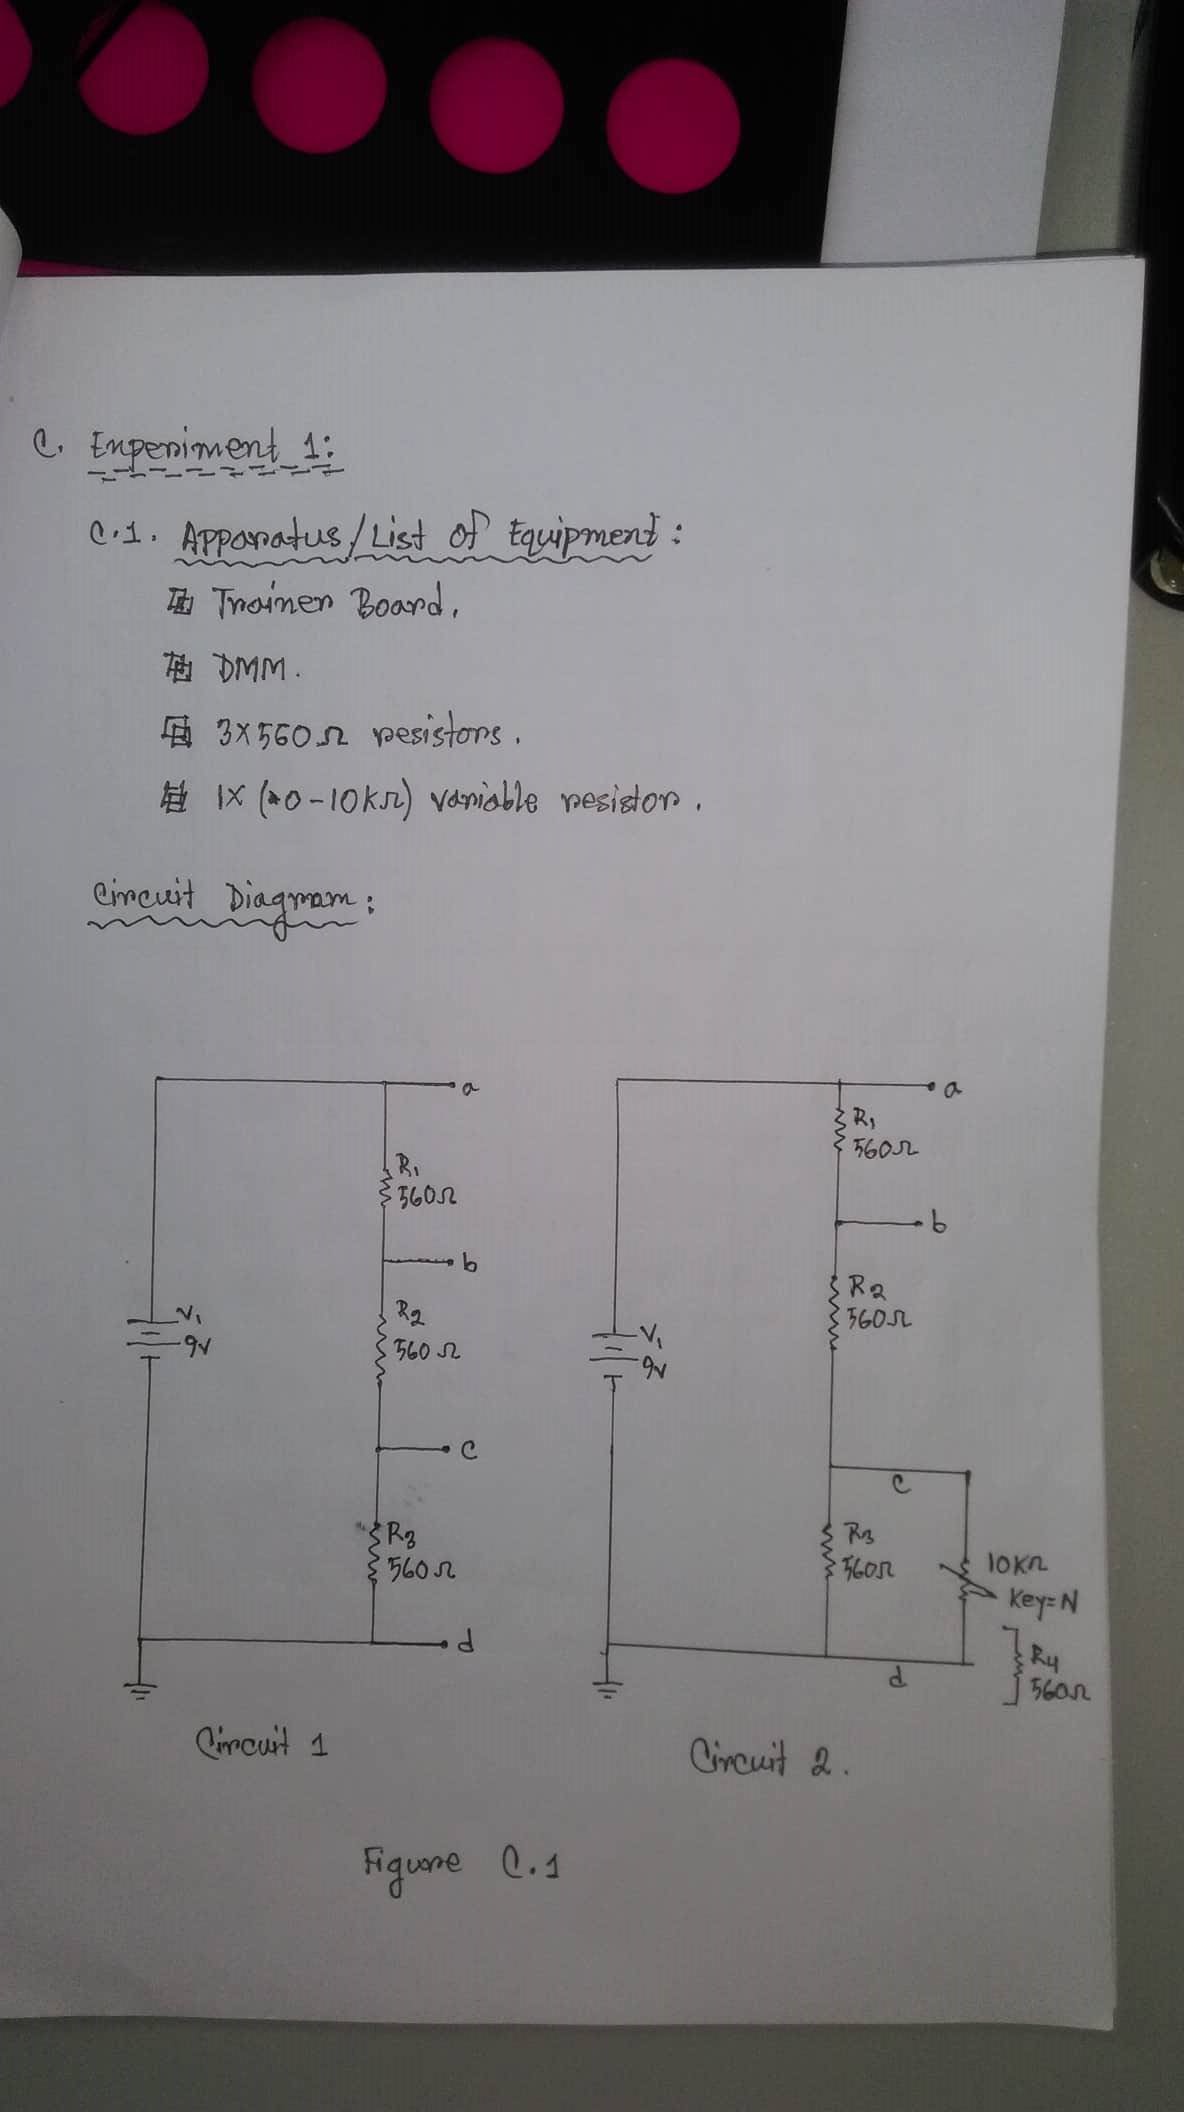 C. Experiment 1:
C.1. Apparatus/List of Equipment:
Trainer Board.
DMM.
3x560Ω resistors.
1x (0-10kΩ) variable resistor.
Circuit Diagram:
a
R1
560Ω
b
R2
560Ω
V1
9V
c
R3
560Ω
d
Circuit 1
a
R1
560Ω
b
R2
560Ω
V1
9V
c
R3
560Ω
10KΩ
Key=N
R4
560Ω
d
Circuit 2.
Figure C.1